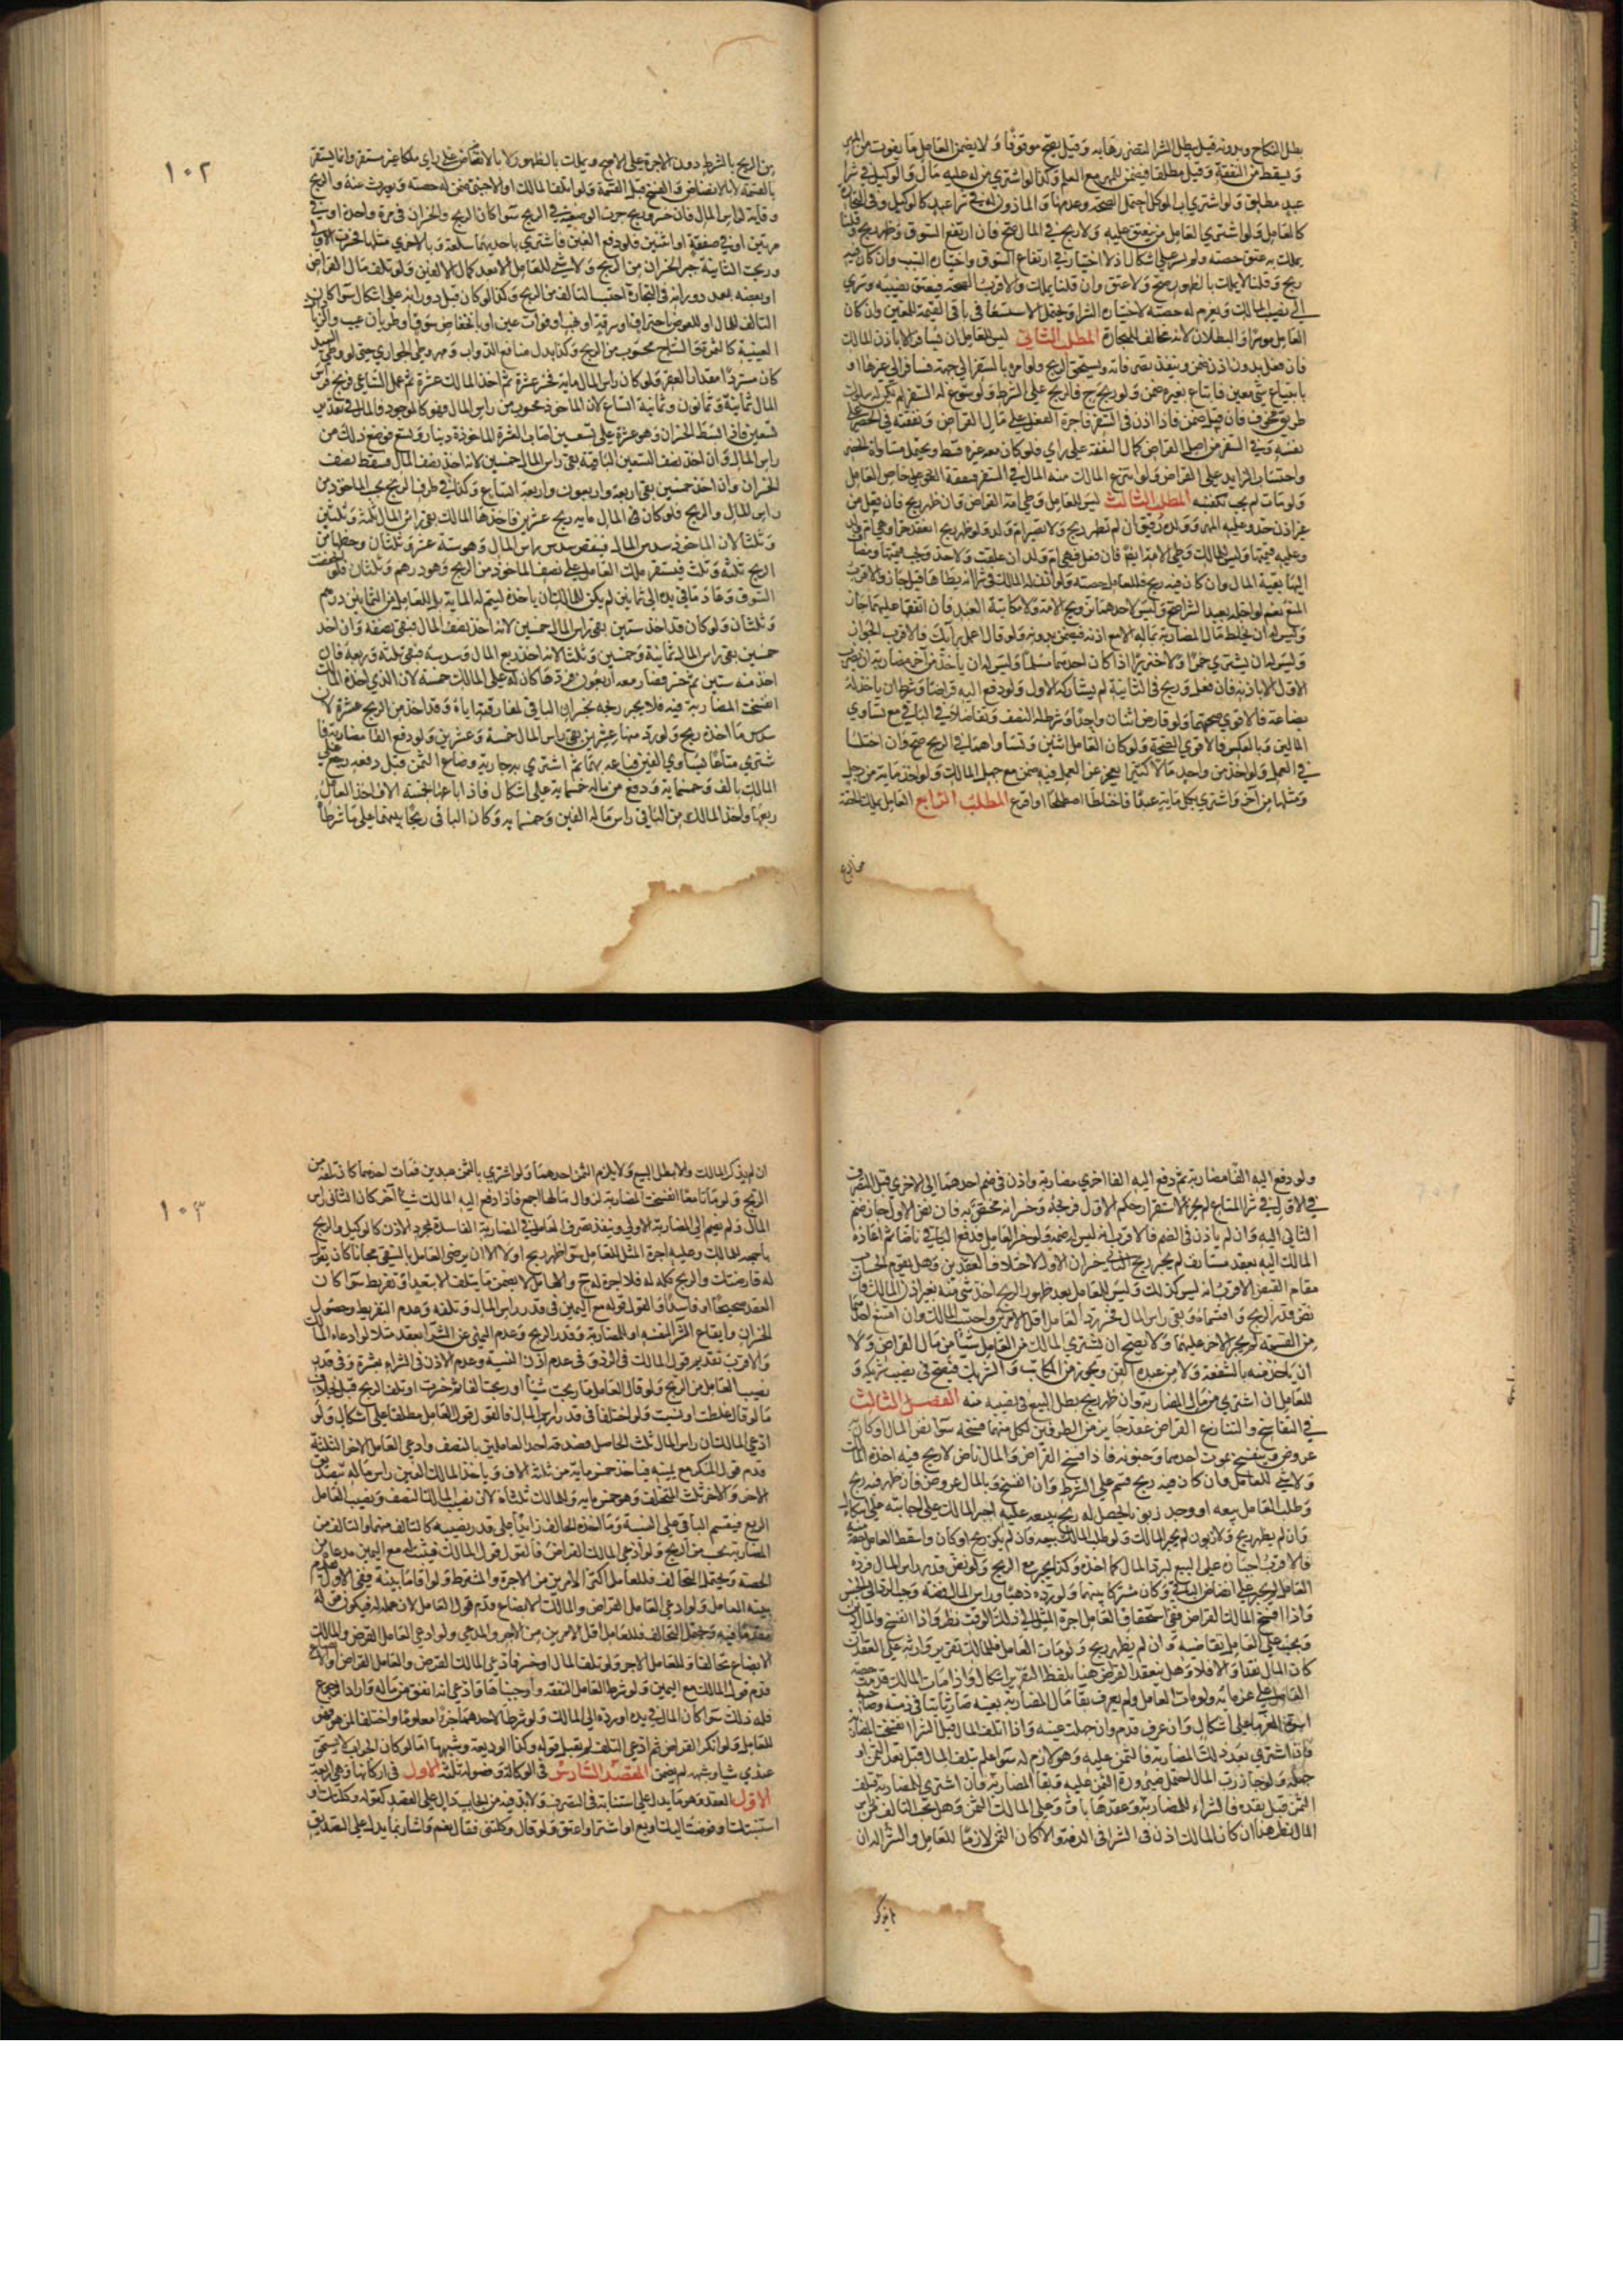 بطل النكاح وبدونه قيل يبطل الشرا لتضرره به وقيل يصح موقوفا ولا يضمن العامل ما يفوت من المهر
ويسقط من النفقة وقيل مطلقا فيضمن المهر مع العلم وكذا لو اشترى من له عليه مال والوكيل في شرا
عبد مطلق ولو اشترى اب الموكل احتمل الصحة وعدمها والماذون له في شرا عبد كالوكيل وفي التجارة
كالعامل ولو اشترى العامل من ينعتق عليه ولا ربح في المال صح فان ارتفع السوق وظهر ربح وقلنا
يملك به عتق حصته ولم يسر على اشكال اذ لا اختيار في ارتفاع السوق واختياره السبب وان كان فيه
ربح وقلنا لا يملك بالظهور صح ولا عتق وان قلنا يملك والاقرب الصحة فيعتق نصيبه ويسري
الى نصيب المالك ويغرم له حصته لاختياره الشرا ويحتمل الاستسعا في باقي القيمة للمعتق وان كان
العامل موسرا والبطلان لانه مخالف للتجارة المطلب الثاني ليس للعامل ان يسافر الا باذن المالك
فان فعل بدون اذن ضمن وينفذ تصرفاته ويستحق الربح ولو امره بالسفر الى جهة فسافر الى غيرها او
بابتياع شي معين فابتاع غيره ضمن ولو ربح ح فالربح على الشرط ولو سوغ له السفر لم يكن له سلوك
طريق مخوف فان فعل ضمن فاذا اذن في السفر فاجرة النقل على مال القراض ونفقته في الحضر على
نفسه وفي السفر من اصل القراض كمال النفقة على راي فلو كان معه غيره قسط ويحتمل مساواة الحضر
واحتساب الزايد على القراض ولو استرع المالك منه المال في السفر فنفقة العود على خاص العامل
ولو مات لم يجب تكفينه المطلب الثالث ليس للعامل وطي امة القراض وان ظهر ربح فان فعل من
غير اذن حد وعليه المهر وولده رقيق ان لم تظهر ربح ولا تصير ام ولد ولو ظهر ربح انعقد حرا وهي ام ولد
وعليه قيمتها وليس للمالك وطي الامة ايضا فان فعل فهي ام ولد ان علقت ولا حد وتحسب قيمتها ويضاف
اليها بقية المال وان كان فيه ربح فللعامل حصته ولو اذن له المالك في شرا امة يطاها قيل جاز والاقرب
المنع نعم لو احله بعد الشرا صح وليس لاحدهما تزويج الامة ولا مكاتبة العبد فان اتفقا عليهما جاز
وليس له ان يخلط مال المضاربة بماله الا مع اذنه فيضمن بدونه ولو قال اعمل برايك فالاقرب الجواز
وليس له ان يشتري خمرا ولا خنزيرا اذا كان احدهما مسلما وليس له ان ياخذ من اخر مضاربة ان تضرر
الاول الا باذنه فان فعل وربح في الثانية لم يشاركه الاول ولو دفع اليه قراضا وشرط ان ياخذ له
بضاعة فالاقوى صحتهما ولو قارض اثنان واحدا وشرطا له النصف وتفاضلا في الباقي مع تساوي
المالين وبالعكس فالاقوى الصحة ولو كان العامل اثنين وتساويا هما في الربح صح وان اختلفا
في العمل ولو اخذ من واحد مالا كثيرا يعجز عن العمل فيه ضمن مع جهل المالك ولو اخذ ماية من رجل
ومثلها من اخر واشترى بكل ماية عبدا فاختلطا اصطلحا او اقرع المطلب الرابع العامل يملك الحصة
من الربح
من الربح بالشرط دون الاجرة على الاصح ويملك بالظهور لا بالانضاض على راي ملكا غير مستقر وانما يستقر
بالقسمة لا بالانضاض والفسخ قبل القسمة ولو اتلفها المالك او الاجنبي ضمن له حصته ويورث عنه والربح
وقاية لراس المال فان خسر وربح جبرت الوضيعة في الربح سوا كان الربح والخسران في مرة واحدة او في
مرتين او في صفقة او اثنين فلو دفع الفين فاشترى باحديهما سلعة وبالاخرى مثلها فخسرت الاولى
وربحت الثانية جبر الخسران من الربح ولا شي للعامل الا بعد كمال الالفين ولو تلف مال القراض
او بعضه بعد دورانه في التجارة احتسب التالف من الربح وكذا لو كان قبل دورانه على اشكال سوا كان
التالف للمال او للعوض باحتراق او سرقة او نهب او فوات عين او بانخفاض سوق او طريان عيب والزيادة
العينية كالثمرة والنتاج محسوب من الربح وكذا بدل منافع الدواب ومهر وطي الجواري حتى لو وطي السيد
كان مستردا مقدار العقر ولو كان راس المال ماية فخسر عشرة ثم اخذ المالك عشرة ثم عمل الساعي فربح فراس
المال ثمانية وثمانون وثمانية اتساع لان الماخوذ محسوب من راس المال فهو كالموجود والمال في تقدير
تسعين فاذا بسط الخسران وهو عشرة على تسعين اصاب العشرة الماخوذة دينار وتسع فوضع ذلك من
راس المال وان اخذ نصف التسعين الباقية بقي راس المال خمسين لانه اخذ نصف المال فسقط نصف
الخسران وان اخذ خمسين بقي اربعة واربعون واربعة اتساع وكذا في طرف الربح يحسب الماخوذ من
راس المال والربح فلو كان في المال ماية ربح عشرين فاخذها المالك بقي راس المال ثلثة وثمانين
وثلثا لان الماخوذ سدس المال فينقص سدس راس المال وهو ستة عشر وثلثان وحظها من
الربح ثلثة وثلث فيستقر ملك العامل على نصف الماخوذ من الربح وهو درهم وثلثان فلو انخفضت
السوق وعاد ما في يده الى ثمانين لم يكن للمالك ان ياخذه ليتم له الماية بل للعامل من الثمانين درهم
وثلثان ولو كان قد اخذ ستين بقي راس المال خمسين لانه اخذ نصف المال فبقي نصفه وان اخذ
خمسين بقي راس المال ثمانية وخمسين وثلثا لانه اخذ ربع المال وسدسه فبقي ثلثه وربعه فان
اخذ منه ستين ثم خسر فصار معه اربعون فردها كان له على المالك خمسة لان الذي اخذه المالك
انفسخت المضاربة فيه فلا يجبر ربحه بخسران الباقي لمفارقته اياه وقد اخذ من الربح عشرة لان
سدس ما اخذه ربح ولو رد منها عشرين بقي راس المال خمسة وعشرين ولو دفع الفا مضاربة فا
شترى متاعا يساوي الفين فباعه بهما ثم اشترى به جارية وضاع الثمن قبل دفعه رجع على
المالك بالف وخمسماية ودفع من ماله خمسماية على اشكال فاذا باعها بخمسة الاف اخذ العامل
ربعها واخذ المالك من الباقي راس ماله الفين وخمسماية وكان الباقي ربحا بينهما على ما شرطا
١٠٢
ولو دفع اليه الفا مضاربة ثم دفع اليه الفا اخرى مضاربة واذن في ضم احدهما الى الاخرى قبل التصرف
في الاولى في شرا المتاع لم يجز لاستقرار حكم الاول فربحه وخسرانه مختص به فان نض الاول جاز ضم
الثاني اليه وان لم ياذن في الضم فالاقرب انه ليس له ضمه ولو خسر العامل فدفع الباقي ناضا ثم اعاده
المالك اليه بعقد مستانف لم يجبر ربح الثاني خسران الاول لاختلاف العقدين وهل يقوم الحساب
مقام القبض الاقرب انه ليس كذلك وليس للعامل بعد ظهور الربح اخذ شي منه بغير اذن المالك فان
نض قدر الربح واقتسماه وبقي راس المال فخسر رد العامل اقل الامرين واحتسب المالك وان امتنع احدهما
من القسمة لم يجبر الاخر عليها ولا يصح ان يشتري المالك من العامل شيئا من مال القراض ولا
ان ياخذ منه بالشفعة ولا من عبده القن ويجوز من المكاتب والشريك فيصح في نصيب شريكه و
للعامل ان اشترى من مال المضاربة وان ظهر ربح بطل البيع في نصيبه منه الفصل الثالث
في التفاسخ والتنازع القراض عقد جايز من الطرفين لكل منهما فسخه سوا نض المال او كان به
عروض وينفسخ بموت احدهما وجنونه فاذا فسخ القراض والمال ناض لا ربح فيه اخذه المالك
ولا شي للعامل وان كان فيه ربح قسم على الشرط وان انفسخ وبالمال عروض فان ظهر فيه ربح
وطلب العامل بيعه او وجد زبون يحصل له ربح ببيعه عليه اجبر المالك على اجابته على اشكال
وان لم يظهر ربح ولا زبون لم يجبر المالك ولو طلب المالك بيعه فان لم يكن ربح او كان واسقط العامل حقه منه
فالاقرب اجباره على البيع ليرد المال كما اخذه وكذا يجبر مع الربح ولو نض قدر راس المال فرده
العامل لم يجبر على انضاض الباقي وكان مشتركا بينهما ولو رده ذهبا وراس المال فضة وجب الرد الى الجنس
واذا فسخ المالك القراض ففي استحقاق العامل اجرة المثل الى ذلك الوقت نظر واذا انفسخ والمال دين
وجب على العامل تقاضيه وان لم يظهر ربح ولو مات العامل فللمالك تقرير وارثه على العقد ان
كان المال نقدا والا فلا وهل ينعقد القراض هنا بلفظ التقرير اشكال واذا مات المالك قدمت حصة
العامل على غرمايه ولو مات العامل ولم يعرف بقا مال المضاربة بعينه صار ثابتا في ذمته وصاحبه
اسوة الغرما على اشكال وان عرف قدم وان جهلت عينه واذا اتلف المال قبل الشرا انفسخت المضاربة
فان اشترى بعد ذلك للمضاربة فالثمن عليه وهو لازم له سوا علم بتلف المال قبل نقد الثمن او
جهله ولو اجاز رب المال احتمل صيرورة الثمن عليه وبقا المضاربة وان اشترى للمضاربة فتلف
الثمن قبل نقده فالشراء للمضاربة وعقدها باق وعلى المالك الثمن وهل يحسب التالف من راس
المال نظر هذا ان كان المالك اذن في الشرا في الذمة والا كان الثمن لازما للعامل والشرا له ان
لم يذكر
ان لم يذكر المالك والا بطل البيع ولا يلزم الثمن احدهما ولو اشترى بالثمن عبدين فمات احدهما كان تلفه من
الربح ولو ماتا معا انفسخت المضاربة لزوال مالها اجمع فاذا دفع اليه المالك شيا اخر كان الثاني راس
المال ولم يضم الى المضاربة الاولى وينفذ تصرف العامل في المضاربة الفاسدة بمجرد الاذن كالوكيل والربح
باجمعه للمالك وعليه اجرة المثل للعامل سوا ظهر ربح او لا الا ان يرضى العامل بالسعي مجانا كان يقول
له قارضتك والربح كله لي فلا اجرة له ح والعامل لا يضمن ما يتلف الا بتعد او تفريط سوا كان
العقد صحيحا او فاسدا والقول قوله مع اليمين في قدر راس المال وتلفه وعدم التفريط وحصول
الخسران وايقاع الشرا لنفسه او للمضاربة وقدر الربح وعدم النهي عن الشرا بعقد مثلا لو ادعاه المالك
والاقرب تقديم قول المالك في الرد وفي عدم اذن النسية وعدم الاذن في الشراء بعشرة وفي قدر
نصيب العامل من الربح ولو قال العامل ما ربحت شيئا او ربحت الفا ثم خسرت او تلف الربح قبل بخلاف
ما لو قال غلطت او نسيت ولو اختلفا في قدر راس المال فالقول قول العامل مطلقا على اشكال ولو
ادعى المالكان راس المال ثلث الحاصل فصدقه احد العاملين بالنصف وادعى العامل الاخر الثلثة
قدم قول المنكر مع يمينه فياخذ خمسماية من ثلثة الاف وياخذ المالك الفين راس ماله بتصديق
الاخر والاخر ثلث المتخلف وهو خمسماية والمالك ثلثاه لان نصيب المالك النصف ونصيب العامل
الربع فيقسم الباقي على النسبة وما اخذه الحالف زائدا على قدر نصيبه كالتالف منهما والتالف من
المضاربة يحسب من الربح ولو ادعى المالك القراض فالقول قول المالك فيثبت له مع اليمين مدعاه من
الحصة ويحتمل التحالف فللعامل اكثر الامرين من الاجرة والمشترط ولو اقاما بينة ففي الاولى تقدم
بينة العامل ولو ادعى العامل القراض والمالك الابضاع قدم قول العامل لان عمله له فيكون قوله
مقدما فيه ويحتمل التحالف فللعامل اقل الامرين من الاجر والمدعى ولو ادعى العامل القرض والمالك
الابضاع تحالفا وللعامل الاجر ولو تلف المال او خسر فادعى المالك القرض والعامل القراض او الابضاع
قدم قول المالك مع اليمين ولو شرط العامل النفقة او اوجبناها فادعى انه انفق من ماله واراد الرجوع
فله ذلك سوا كان المال في يده او رده الى المالك ولو شرط لاحدهما جزءا معلوما واختلفا لمن هو فهو
للعامل ولو انكر القراض ثم ادعى التلف لم يقبل قوله وكذا الوديعة وشبهها اما لو كان الجواب لا يستحق
عندي شيا وشبهه لم يضمن المقصد السادس في الوكالة وفصوله ثلثة الاول في اركانها وهي اربعة
الاول العقد وهو ما يدل على استنابة في التصرف ولا بد فيه من ايجاب دال على القصد كقوله وكلتك او
استنبتك او فوضت اليك او بع او اشتر او اعتق ولو قال وكلتني فقال نعم او اشار بما يدل على التصديق
١٠٣